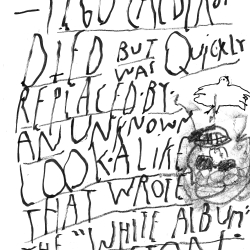 DIED BUT QUICKLY
WAS
REPLACED·BY:
AN UNKNOWN
LOOK·A LIKE
THAT WROTE
THE "WHITE ALBUM"